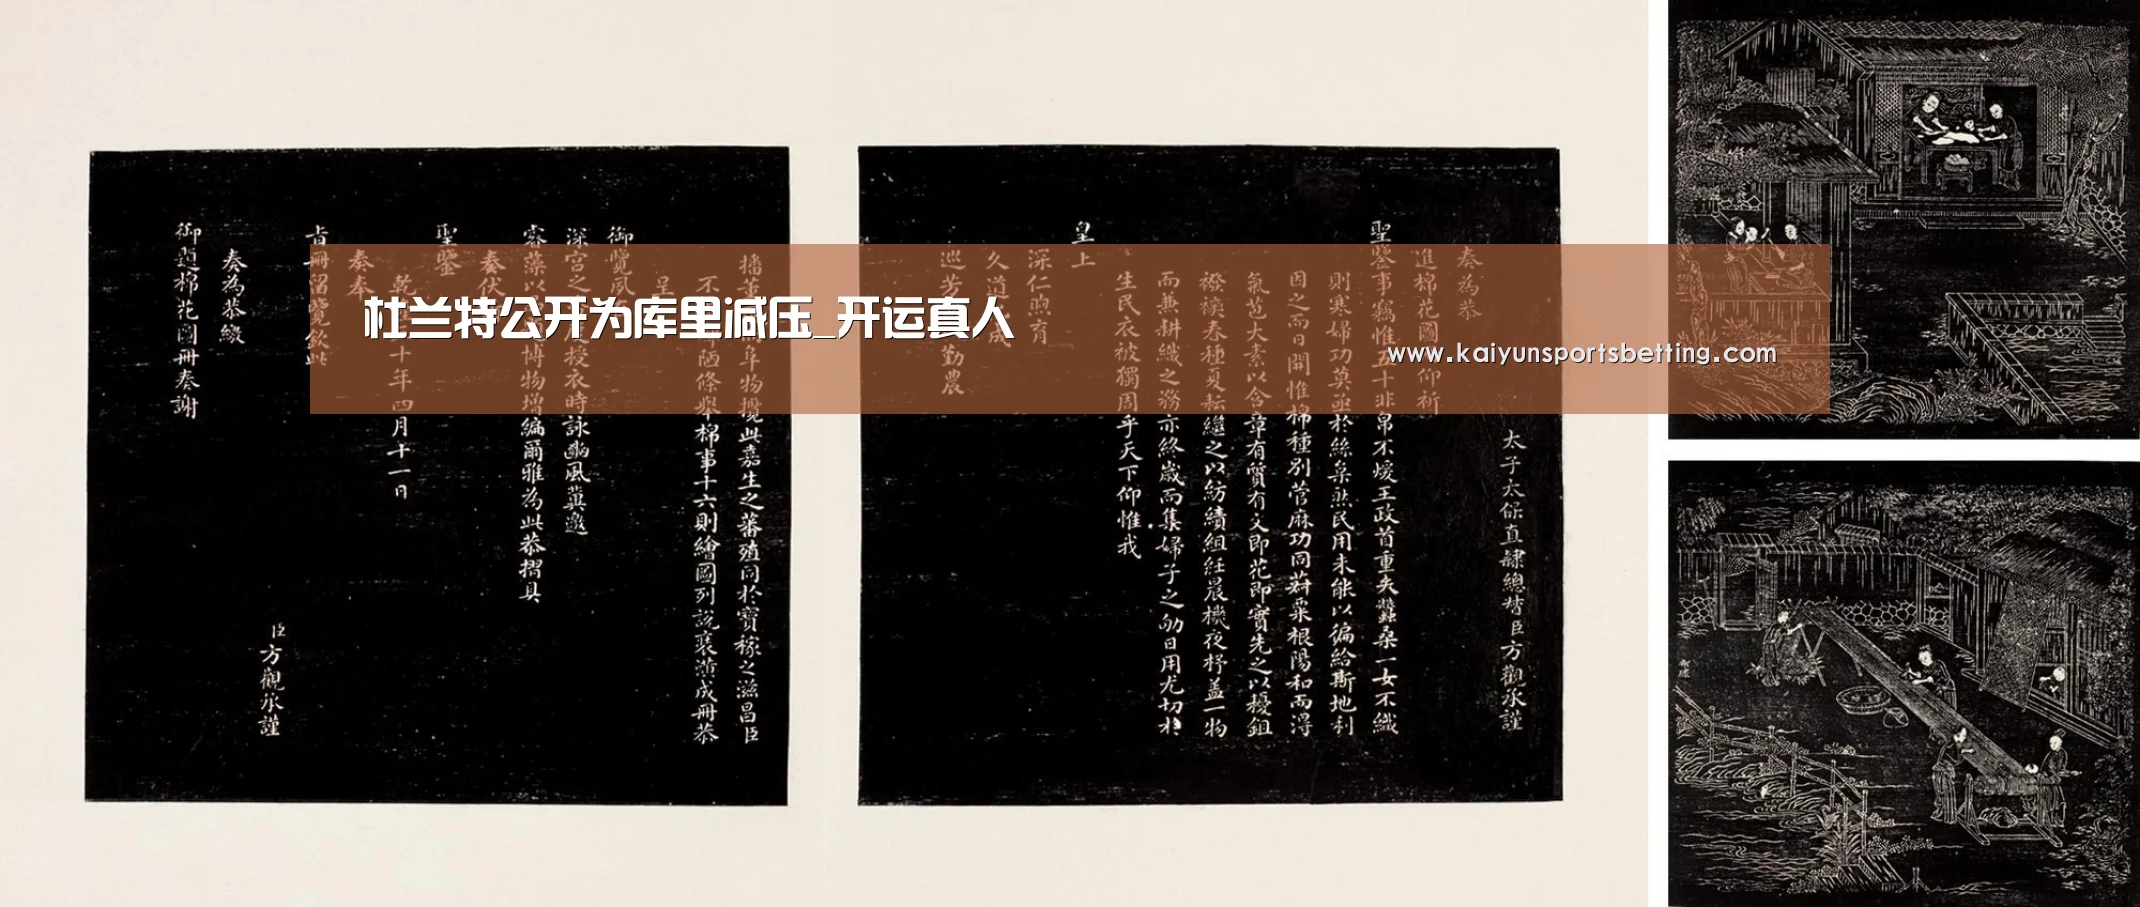 杜兰特公开为库里减压_开运真人
www.kaiyunsportsbetting.com
太子太保直隸總督臣方觀承謹
奏為恭
進棉花圖 仰祈
聖鑒事竊惟五十非帛不煖王政首重夫蠶桑一女不織
則寒婦功莫亟於絲枲然民用未能以徧給斯地利
因之而日開惟棉種別菅麻功同 根陽和而得
氣苞大素以含章有質有文即花即實先之以耰鉏
襏襫春種夏耘繼之以紡績組紝晨機夜杼蓋一物
而兼耕織之務亦終歲而集婦子之劬日用尤切於
生民衣被獨周乎天下仰惟我
皇上
深仁煦育
久道 成
巡 勤農
播 阜物攬此嘉生之蕃殖同於寶稼之滋昌臣
不 陋條舉棉事十六則繪圖列說裝潢成冊恭
呈
御覽 風
深宮之 授衣時詠豳風冀邀
睿藻以 博物增編爾雅為此恭摺具
奏伏
聖鑒
乾 十年四月十一日
奏奉
旨冊留覽欽此
臣方觀承謹
奏為恭繳
御題棉花圖冊奏謝